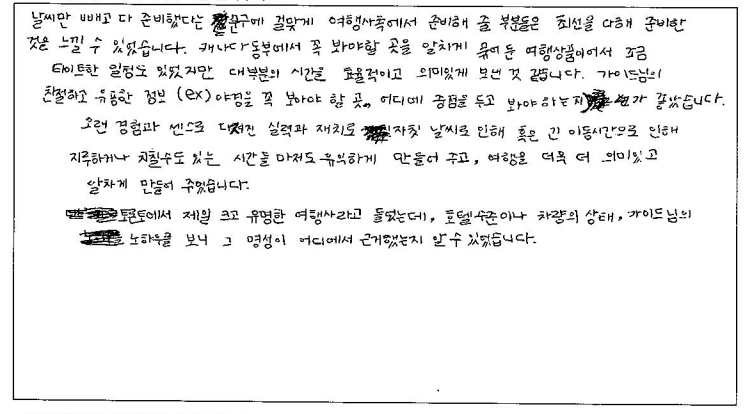 날씨만 빼고 다 준비했다는 문구에 걸맞게 여행사쪽에서 준비해 줄 부분들은 최선을 다해 준비한
것을 느낄 수 있었습니다. 캐나다동부에서 꼭 봐야할 곳을 알차게 묶어둔 여행상품이어서 조금
타이트한 일정도 있었지만 대부분의 시간을 효율적이고 의미있게 보낸 것 같습니다. 가이드님의
친절하고 유용한 정보 (ex) 야경을 꼭 보아야 할 곳, 어디에 중점을 두고 봐야 하는지)가 많았습니다.
오랜 경험과 센스로 다져진 실력과 재치로 자칫 날씨로 인해 혹은 긴 이동시간으로 인해
지루하거나 지칠수도 있는 시간들 마저도 유익하게 만들어 주고, 여행을 더욱 더 의미있고
알차게 만들어 주었습니다.
토론토에서 제일 크고 유명한 여행사라고 들었는데, 호텔수준이나 차량의 상태, 가이드님의
노하우를 보니 그 명성이 어디에서 근거했는지 알 수 있었습니다.